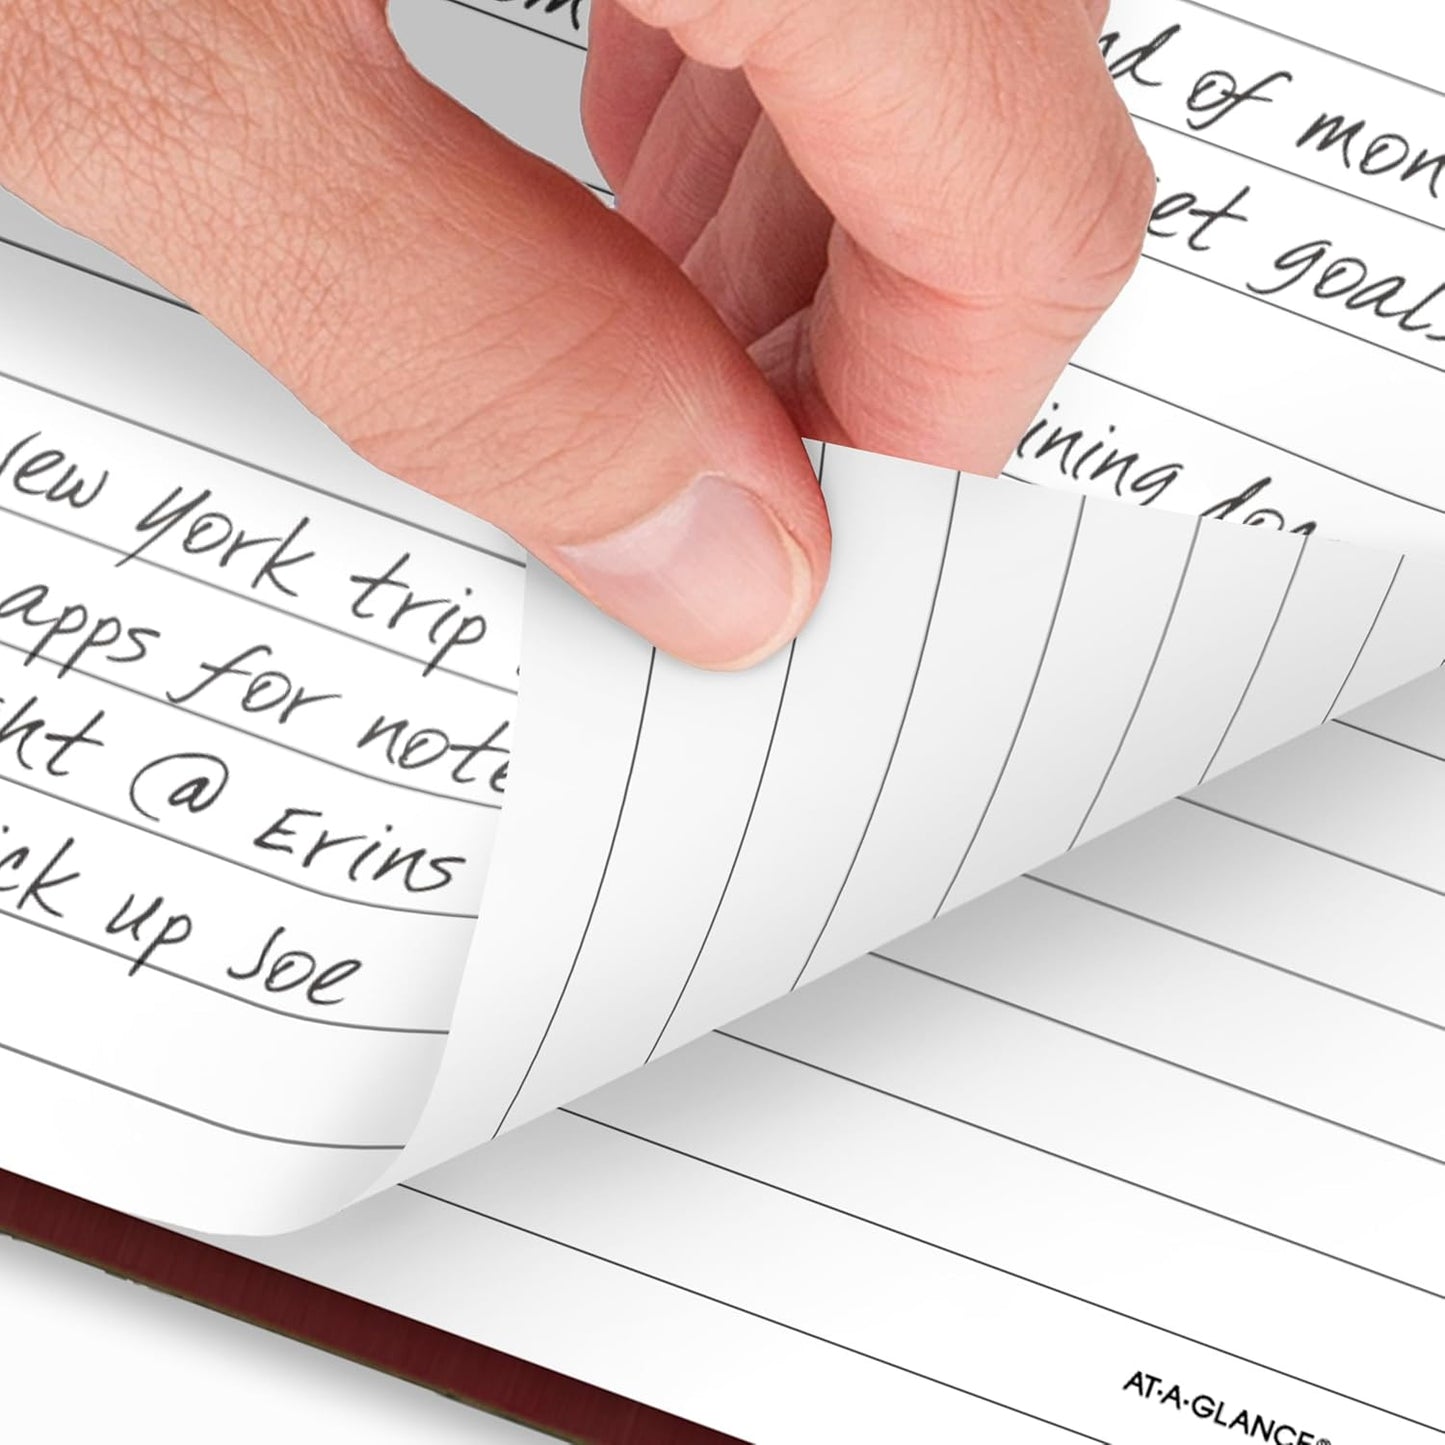 of mon
et goals
ining
ew York trip
apps for note
ht @ Erins
ick up Joe
AT-A-GLANCE®